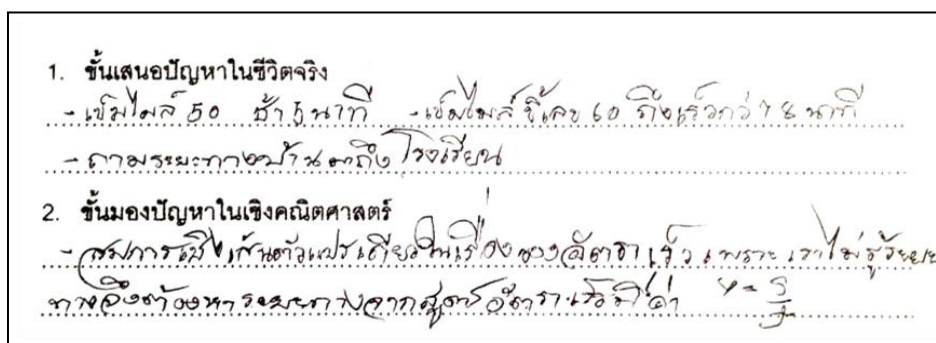 1. ขั้นเสนอปัญหาในชีวิตจริง
- เข็มไมล์ 50 ช้า 5 นาที - เข็มไมล์ ชี้เลข 60 ถึงเร็วกว่า 8 นาที
- ถามระยะทางบ้านถึงโรงเรียน
2. ขั้นมองปัญหาในเชิงคณิตศาสตร์
- สมการเชิงเส้นตัวแปรเดียวในเรื่องของอัตราเร็ว เพราะเราไม่รู้ระยะ
ทางจึงต้องหาระยะทางจากสูตรอัตราเร็ว